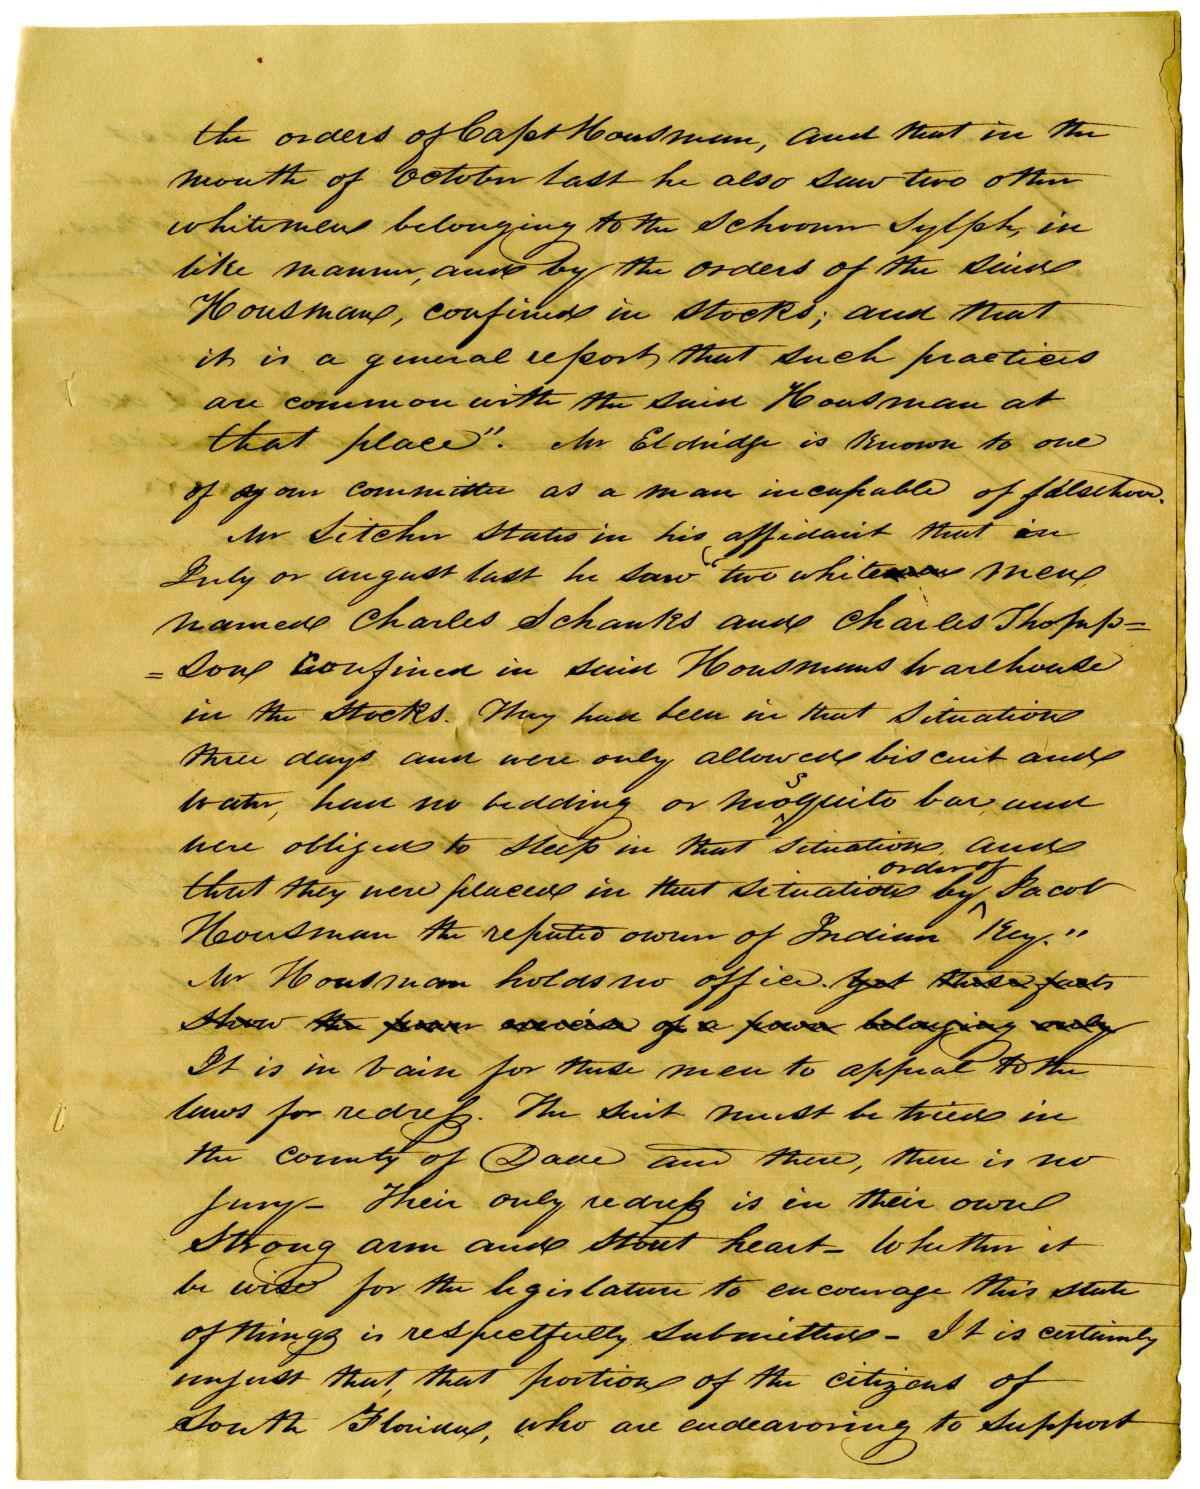 the orders of Capt Housman, and that in the
month of October last he also saw two other
whitemen belonging to the Schooner Sylph, in
like manner, and by the orders of the said
Housman, confined in stocks; and that
it is a general report, that such practices
are common with the said Housman at
that place". Mr Eldridge is known to one
of your committee as a man incapable of falsehood.
Mr Litcher states in his affidavit that in
July or august last he saw "two white men
named Charles Schanks and Charles Thomp=
=son confined in said Housmans warehouse
in the stocks. They had been in that situation
three days and were only allowed biscuit and
water, had no bedding or mosquito bar, and
were obliged to sleep in that situation, and
that they were placed in that situation by order of Jacob
Housman the reputed owner of Indian Key."
Mr Housman holds no office. Yet these facts
show the power exercise of a power belonging only
It is in vain for these men to appeal to the
laws for redress. The suit must be tried in
the county of Dade and there, there is no
jury - Their only redress is in their own
strong arm and stout heart - Whether it
be wise for the legislature to encourage this state
of things is respectfully submitted - It is certainly
unjust that, that portion of the citizens of
South Florida, who are endeavoring to support